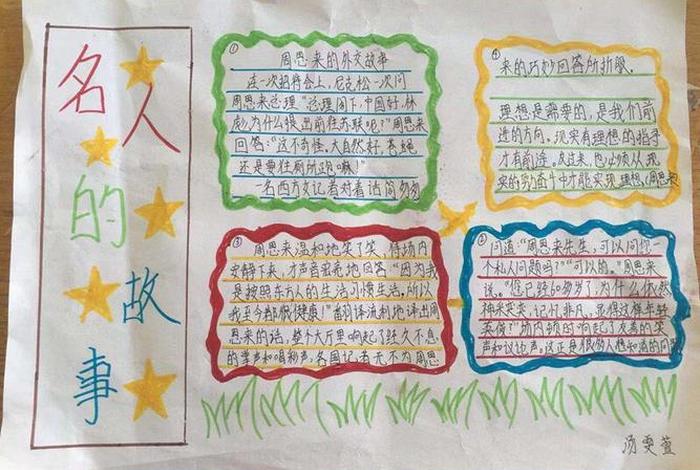 名人的故事
①
周恩来的外交故事
在一次招待会上，尼克松一次问
周恩来总理“总理阁下，中国好，林
彪为什么提出前往苏联呢？”周恩来
回答：“这不奇怪。大自然好，苍蝇
还是要往厕所跑嘛！”
一名西方女记者对着话筒匆匆
②
问道：“周恩来先生，可以问您一
个私人问题吗？”“可以的。”周恩来
说。“您已经60多岁了，为什么依然
神采奕奕，记忆非凡，显得这样年轻
英俊？”场内顿时响起了友善的笑
声和议论声。这正是很多人想知道的问题
③
周恩来温和地笑了笑，待场内
安静下来，才声音宏亮地回答：“因为我
是按照东方人的生活习惯生活，所以
我至今都很健康！”翻译流利地译出周
恩来的话，整个大厅里响起了经久不息
的掌声和喝彩声，各国记者无不为周恩
④
来的巧妙回答所折服。
理想是需要的，是我们前
进的方向。现实有理想的指导
才有前途。反过来，也必须从现
实的努力奋斗中才能实现理想。（周恩来
汤雯萱